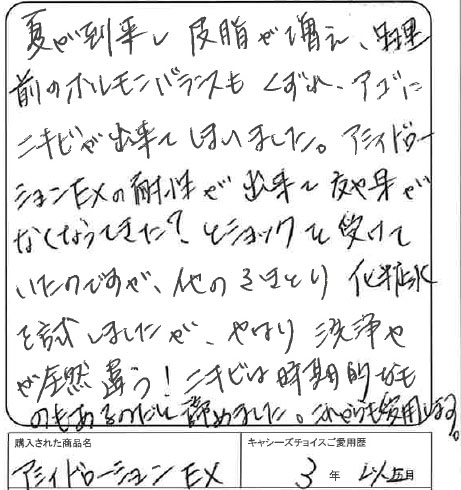 夏が到来し皮脂が増え、生理
前のホルモンバランスもくずれ、アゴに
ニキビが出来てしまいました。アミィドロー
ションEXの耐性が出来て効果が
なくなってきた?とショックを受けて
いたのですが、他のふきとり化粧水
を試しましたが、やはり洗浄や
が全然違う!ニキビは時期的なも
のもあるのだと諦めました。これからも愛用します。
購入された商品名
キャシーズチョイスご愛用歴
アミィドローションEX
3年 以上月